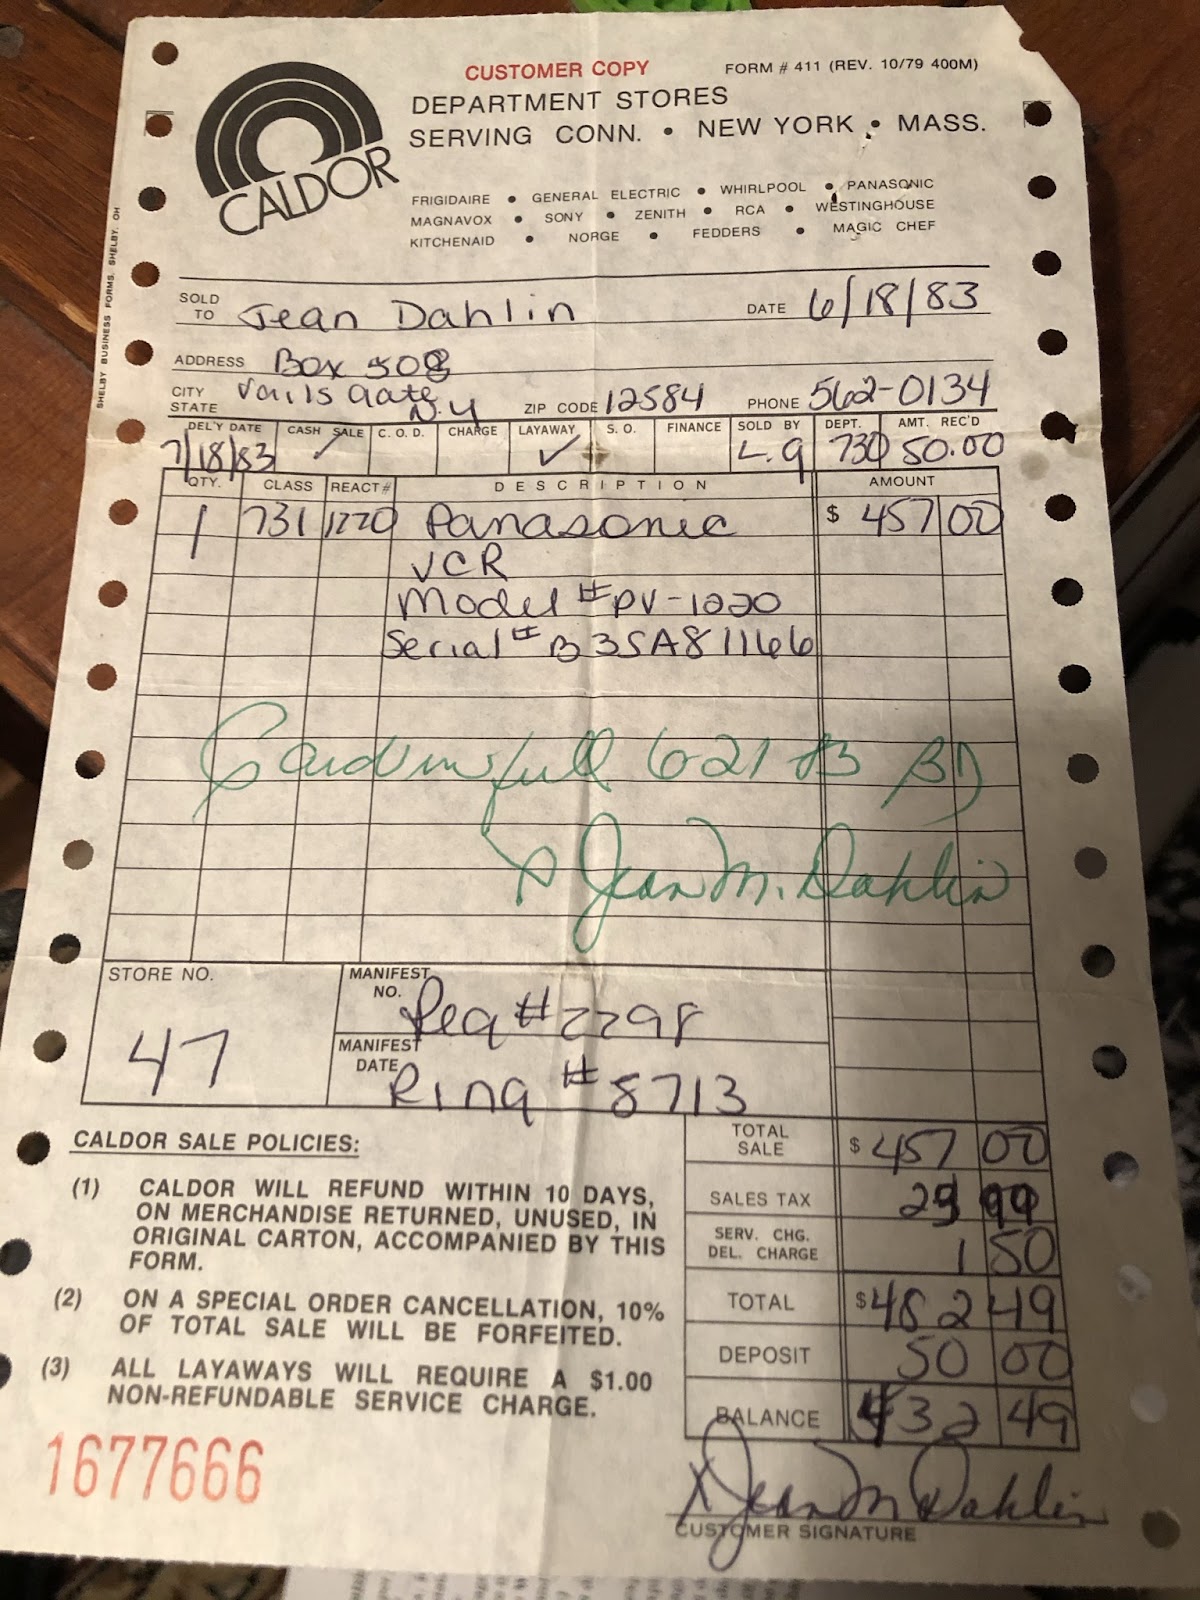 CUSTOMER COPY
FORM # 411 (REV. 10/79 400M)
CALDOR
DEPARTMENT STORES
SERVING CONN. • NEW YORK • MASS.
FRIGIDAIRE • GENERAL ELECTRIC • WHIRLPOOL • PANASONIC
MAGNAVOX • SONY • ZENITH • RCA • WESTINGHOUSE
KITCHENAID • NORGE • FEDDERS • MAGIC CHEF
SHELBY BUSINESS FORMS, SHELBY, OH
SOLD TO Jean Dahlin DATE 6/18/83
ADDRESS Box 508
CITY STATE Vails Gate N.Y ZIP CODE 12584 PHONE 562-0134
DEL'Y DATE CASH SALE C.O.D. CHARGE LAYAWAY S.O. FINANCE SOLD BY DEPT. AMT. REC'D
7/18/83 ✓ L.g 730 50.00
QTY. CLASS REACT# DESCRIPTION AMOUNT
1 731 1220 Panasonic $ 457 00
VCR
Model # PV-1220
Serial # B3SA81166
full 6 21 83 BD
X Jean M. Dahlin
STORE NO. 47
MANIFEST NO. Reg # 2298
MANIFEST DATE Ring # 8713
CALDOR SALE POLICIES:
(1) CALDOR WILL REFUND WITHIN 10 DAYS,
ON MERCHANDISE RETURNED, UNUSED, IN
ORIGINAL CARTON, ACCOMPANIED BY THIS
FORM.
(2) ON A SPECIAL ORDER CANCELLATION, 10%
OF TOTAL SALE WILL BE FORFEITED.
(3) ALL LAYAWAYS WILL REQUIRE A $1.00
NON-REFUNDABLE SERVICE CHARGE.
TOTAL SALE $ 457 00
SALES TAX 23 99
SERV. CHG. DEL. CHARGE 1 50
TOTAL $ 482 49
DEPOSIT 50 00
BALANCE 432 49
1677666
X Jean M Dahlin
CUSTOMER SIGNATURE